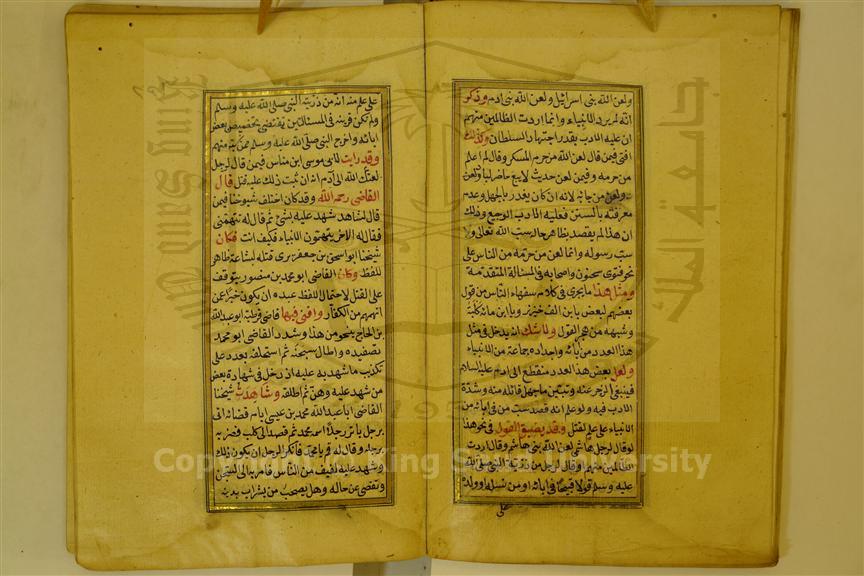 ولعن الله بنى اسرائيل ولعن الله بنى ادم وذكر
انه لم يرد الانبياء وانما اردت الظالمين منهم
ان عليه الادب بقدر اجتهاد السلطان وكذلك
افتى فيمن قال لعن الله من حرم المسكر وقال لم اعلم
من حرمه وفيمن لعن حديث لا يبع حاضر لباد ولعن
ولعن من جاء به لانه ان كان يعذر بالجهل وعدم
معرفته بالسنن فعليه الادب الوجيع وذلك
ان هذا لم يقصد بظاهر حاله سب الله تعالى ولا
سب رسوله وانما لعن من حرمه من الناس على
نحو فتوى سحنون واصحابه فى المسالة المتقدمة
ومثل هذا ما يجرى فى كلام سفهاء الناس من قول
بعضهم لبعض يا ابن الف خنزير ويا ابن مائة كلب
وشبهه من هجر القول ولا شك انه يدخل فى مثل
هذا العدد من آبائه واجداده جماعة من الانبياء
ولعل بعض هذا العدد منقطع الى ادم عليه السلام
فينبغى الزجر عنه وتبيين ما جهل قائله منه وشدة
الادب فيه ولو علم انه قصد سب من فى ابائه من
الانبياء على علم لقتل وقد يضيق القول فى نحو هذا
لو قال لرجل هاشمى لعن الله بنى هاشم وقال اردت
الظالمين منهم او قال لرجل من ذرية النبى صلى الله
عليه وسلم قولا قبيحا فى ابائه او من نسله او ولده
على
على علم منه انه من ذرية النبى صلى الله عليه وسلم
ولم تكن قرينة فى المسئلتين تقتضى تخصيص بعض
ابائه واخرج النبى صلى الله عليه وسلم ممن سبه منهم
وقد رايت لابى موسى ابن مناس فيمن قال لرجل
لعنك الله الى آدم انه ان ثبت ذلك عليه قتل قال
القاضى رحمه الله وقد كان اختلف شيوخنا فيمن
قال لشاهد شهد عليه بشئ ثم قال له تتهمنى
فقال له الاخر الانبياء يتهمون فكيف انت فكان
شيخنا ابو اسحق بن جعفر يرى قتله لبشاعة ظاهر
اللفظ وكان القاضى ابو محمد بن منصور يتوقف
على القتل لاحتمال اللفظ عنده ان يكون خبرا عن
اتهمهم من الكفار وافتى فيها قاضى قرطبة ابو عبد الله
بن الحاج بنحو من هذا وشدد القاضى ابو محمد
تصفيده واطال سجنه ثم استحلفه بعد على
تكذيب ما شهد به عليه اذ دخل فى شهادة بعض
من شهد عليه وهن ثم اطلقه وشاهدت شيخنا
القاضى ابا عبد الله محمد بن عيسى ايام قضائه اتى
برجل هاتر رجلا اسمه محمد ثم قصد الى كلب فضربه
برجله وقال له قم يا محمد فانكر الرجل ان يكون ذلك
وشهد عليه لفيف من الناس فامر به الى السجن
وتقصى عن حاله وهل يصحب من يستراب بدينه
Copyright © King Saud University
King Saud University
جامعة الملك
195